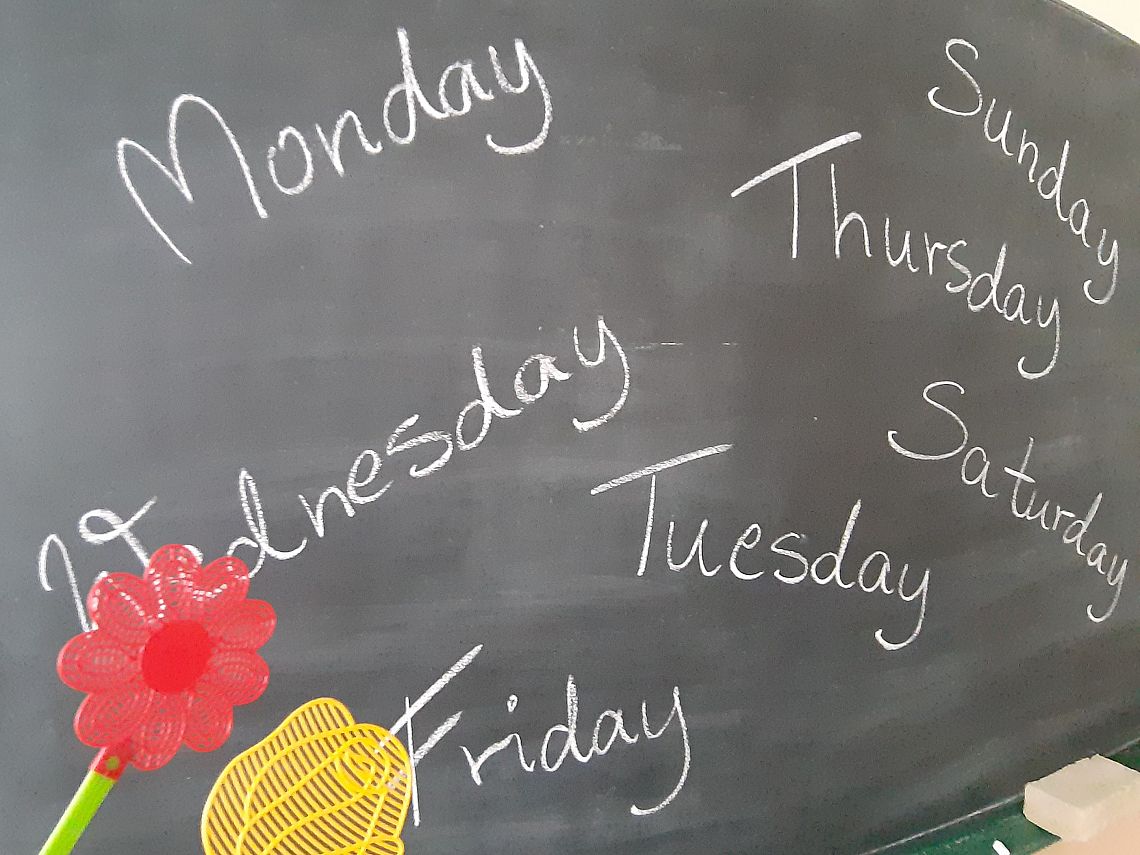 Monday
Sunday
Thursday
Wednesday
Saturday
Tuesday
Friday